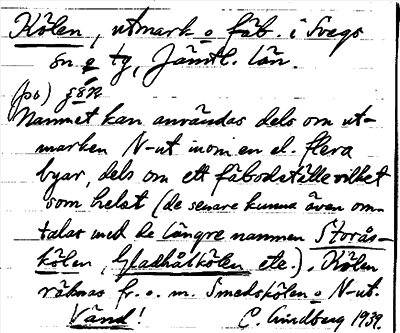 Kölen, utmark o fäb. i Svegs
sn o tg, Jämtl. län.
(på)
Namnet kan användas dels om ut-
marken N-ut inom en el. flera
byar, dels om ett fäbodställe vilket
som helst (de senare kunna även om-
talas med de längre namnen Storås-
kölen, Gladhålkölen etc.). Kölen
räknas fr. o. m. Smedskölen o N-ut.
Vänd! C. Lindberg 1939.